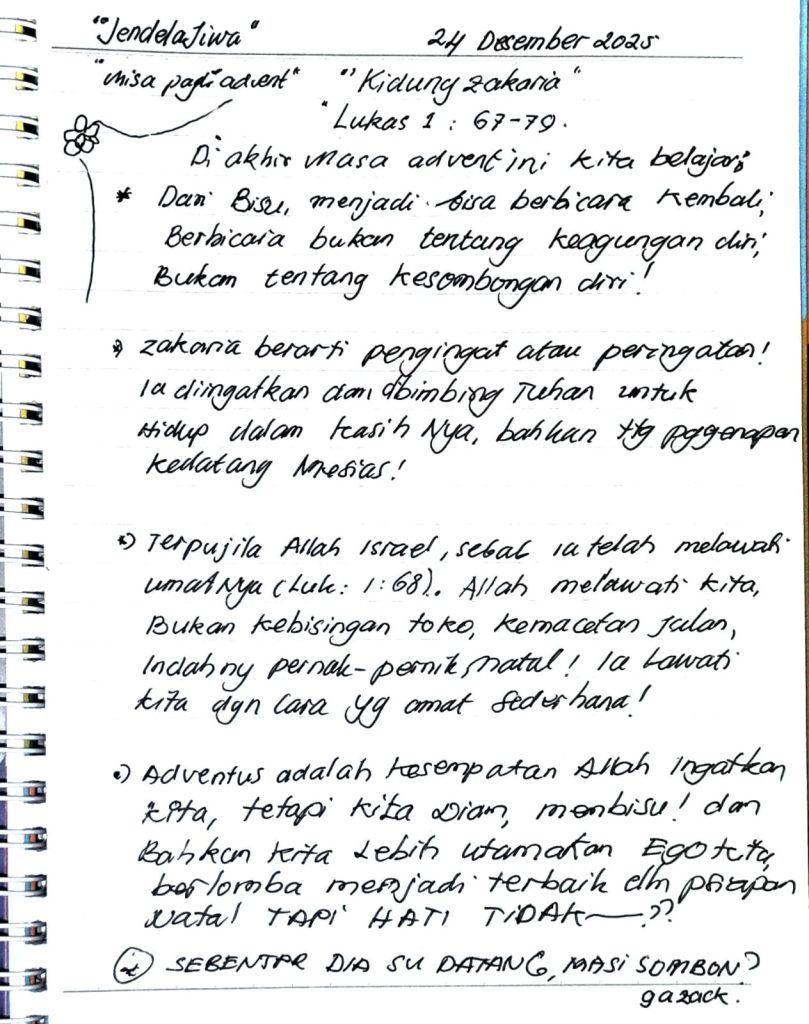 "JendelaJiwa" 24 Desember 2025
"Misa pagi advent" "Kidung Zakaria"
"Lukas 1 : 67-79.
Di akhir masa advent ini kita belajar;
* Dari Bisu, menjadi bisa berbicara kembali,
Berbicara bukan tentang keagungan diri,
Bukan tentang kesombongan diri!
*) Zakaria berarti pengingat atau peringatan!
Ia diingatkan dan dibimbing Tuhan untuk
Hidup dalam kasih Nya, bahkan ttg pggenapan
kedatang Mesias!
*) Terpujila Allah Israel, sebab ia telah melawati
umatNya (Luk: 1:68). Allah melawati kita,
Bukan kebisingan toko, kemacetan jalan,
Indahny pernak-pernik natal! Ia Lawati
kita dgn cara yg amat sederhana!
•) Adventus adalah kesempatan Allah Ingatkan
kita, tetapi kita Diam, membisu! dan
Bahkan kita Lebih utamakan Ego kita,
berlomba menjadi terbaik dlm
Natal TAPI HATI TIDAK—??
SEBENTAR DIA SU DATANG, MASI SOMBON?
gazack.